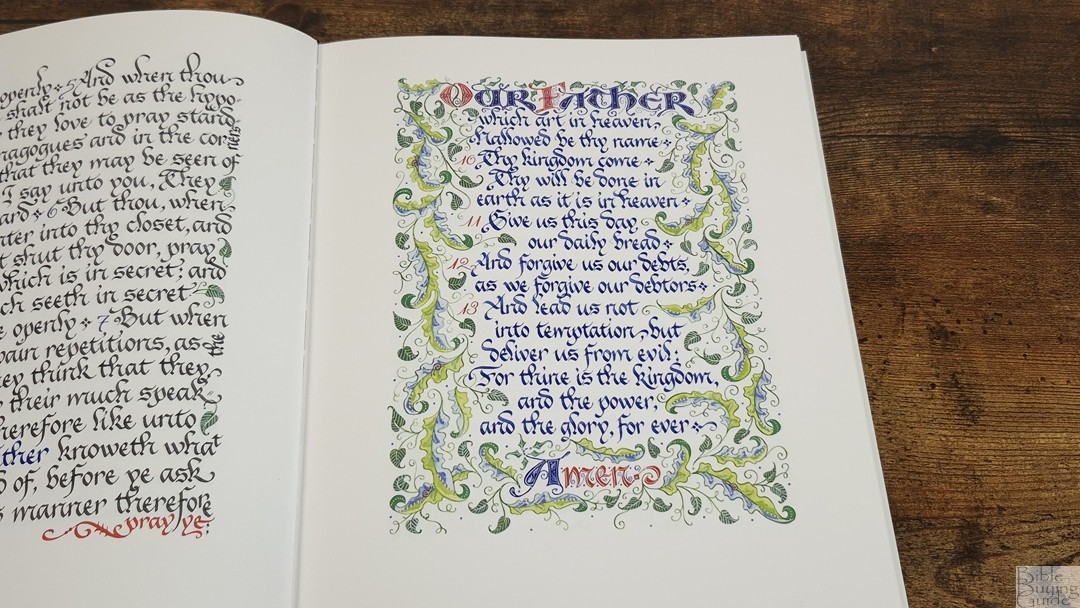 openly 5 And when thou
shalt not be as the hypo-
they love to pray stand
nagogues and in the cor
ners
that they may be seen of
I say unto you, They
ard 6 But thou, when
nter into thy closet, and
t shut thy door, pray
which is in secret; and
ch seeth in secret
e openly 7 But when
vain repetitions, as
the
ey think that they
their much speak
herefore like unto
ther knoweth what
of, before ye ask
s manner therefore
pray ye:
Our Father
which art in heaven,
Hallowed be thy name
10 Thy kingdom come
Thy will be done in
earth as it is in heaven
11 Give us this day
our daily bread
12 And forgive us our debts,
as we forgive our debtors
13 And lead us not
into temptation, but
deliver us from evil:
For thine is the kingdom,
and the power,
and the glory, for ever
Amen
Bible
Buying
Guide